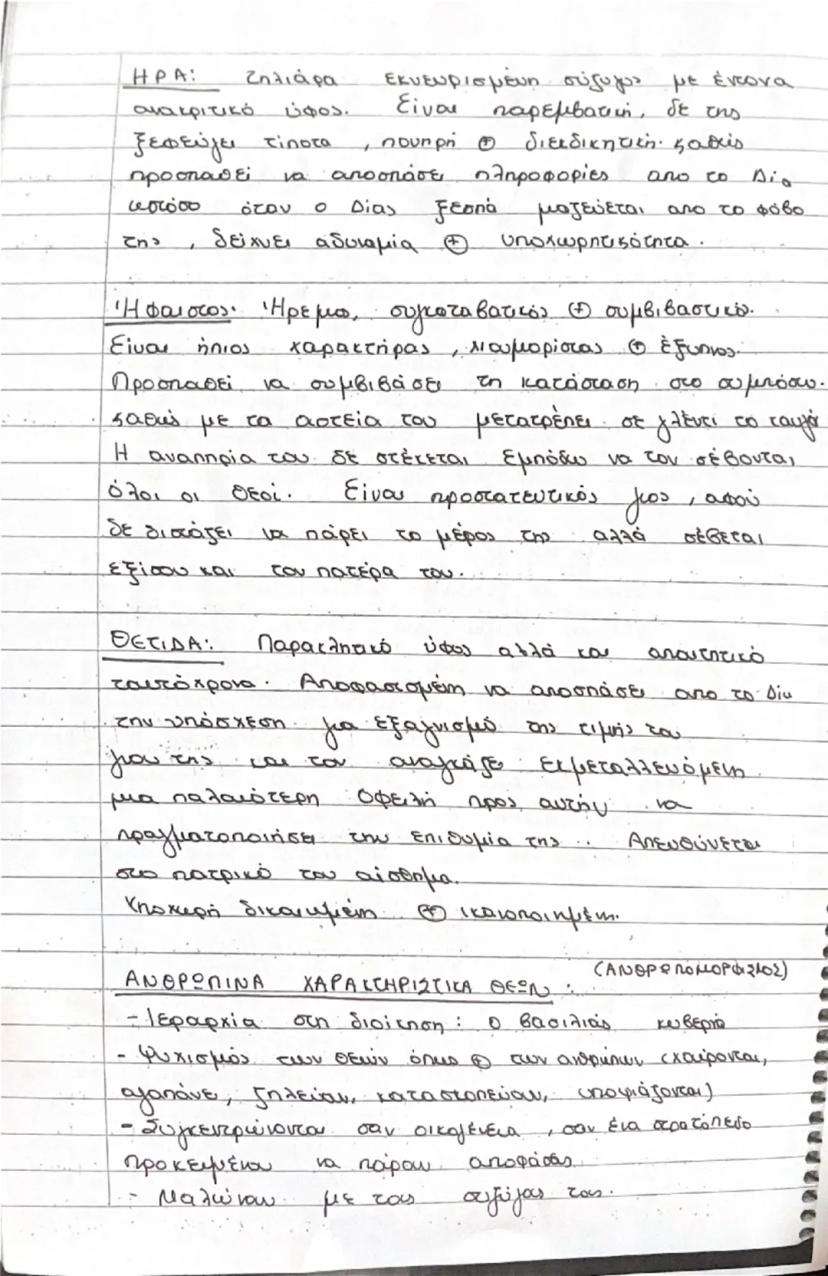 ΗΡΑ: Ζηλιάρα εκνευρισμένη σύζυγος με έντονα
ανακριτικό ύφος. Είναι παρεμβατική, δε της
ξεφεύγει τίποτα, πονηρή ⊕ διεκδικητική καθώς
προσπαθεί να αποσπάσει πληροφορίες απο το Δία
ωστόσο όταν ο Δίας ξεσπά μαζεύεται απο το φόβο
της, δείχνει αδυναμία ⊕ υποχωρητικότητα.
Ήφαιστος: Ήρεμος, συγκαταβατικός ⊕ συμβιβαστικός.
Είναι ήπιος χαρακτήρας, χιουμορίστας ⊕ έξυπνος.
Προσπαθεί να συμβιβάσει τη κατάσταση στο συμπόσιο
καθώς με τα αστεία του μετατρέπει σε γλέντι το
Η αναπηρία του δε στέκεται εμπόδιο να τον σέβονται
όλοι οι θεοί. Είναι προστατευτικός γιος, αφού
δε διστάζει να πάρει το μέρος της αλλά σέβεται
εξίσου και τον πατέρα του.
ΘΕΤΙΔΑ: Παρακλητικό ύφος αλλά και απαιτητικό
ταυτόχρονα. Αποφασισμένη να αποσπάσει απο το Δία
την υπόσχεση για εξαγνισμό της τιμής του
γιου της και τον αναγκάζει εκμεταλλευόμενη
μια παλαιότερη οφειλή προς αυτήν να
πραγματοποιήσει την επιθυμία της.. Απευθύνεται
στο πατρικό του αίσθημα.
δικαιωμένη ⊕ ικανοποιημένη.
(ΑΝΘΡΩΠΟΜΟΡΦΙΣΜΟΣ)
ΑΝΘΡΩΠΙΝΑ ΧΑΡΑΚΤΗΡΙΣΤΙΚΑ ΘΕΩΝ:
- Ιεραρχία στη διοίκηση: ο βασιλιάς κυβερνά
- Ψυχισμός των θεών όπως ⊕ των ανθρώπων (χαίρονται,
αγαπάνε, ζηλεύουν, κατασκοπεύουν, υποψιάζονται)
- Συγκεντρώνονται σαν οικογένεια, σαν ένα στρατόπεδο
προκειμένου να πάρουν αποφάσεις
- Μαλώνουν με τους συζύγους τους.